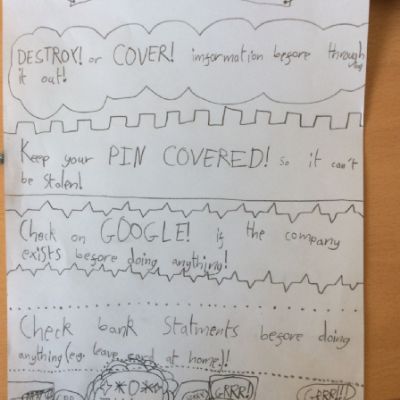 DESTROY! or COVER! information before through
it out!
Keep your PIN COVERED! so it can't
be stolen!
Check on GOOGLE! if the company
exists before doing anything!
Check bank Statments before doing
anything (e.g. leave card at home)!
GRRR! GRR!!!